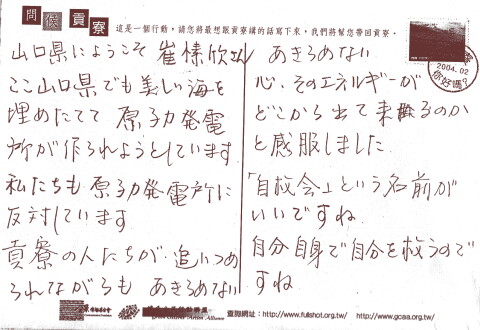 問候貢寮
這是一個行動，請您將最想跟貢寮講的話寫下來，我們將幫您帶回貢寮。
山口県にようこそ 崔愫欣さん
ここ山口県でも美しい海を
埋めたてて 原子力発電
所が作られようとしています
私たちも原子力発電所に
反対しています
貢寮の人たちが、追いつめ
られながらも あきらめない
あきらめない
心、そのエネルギーが
どこから出て来るのか
と感服しました
「自救会」という名前が
いいですね
自分自身で自分を救うので
すね
2004.02
你好嗎?
查詢網址：http://www.fullshot.org.tw/ http://www.gcaa.org.tw/